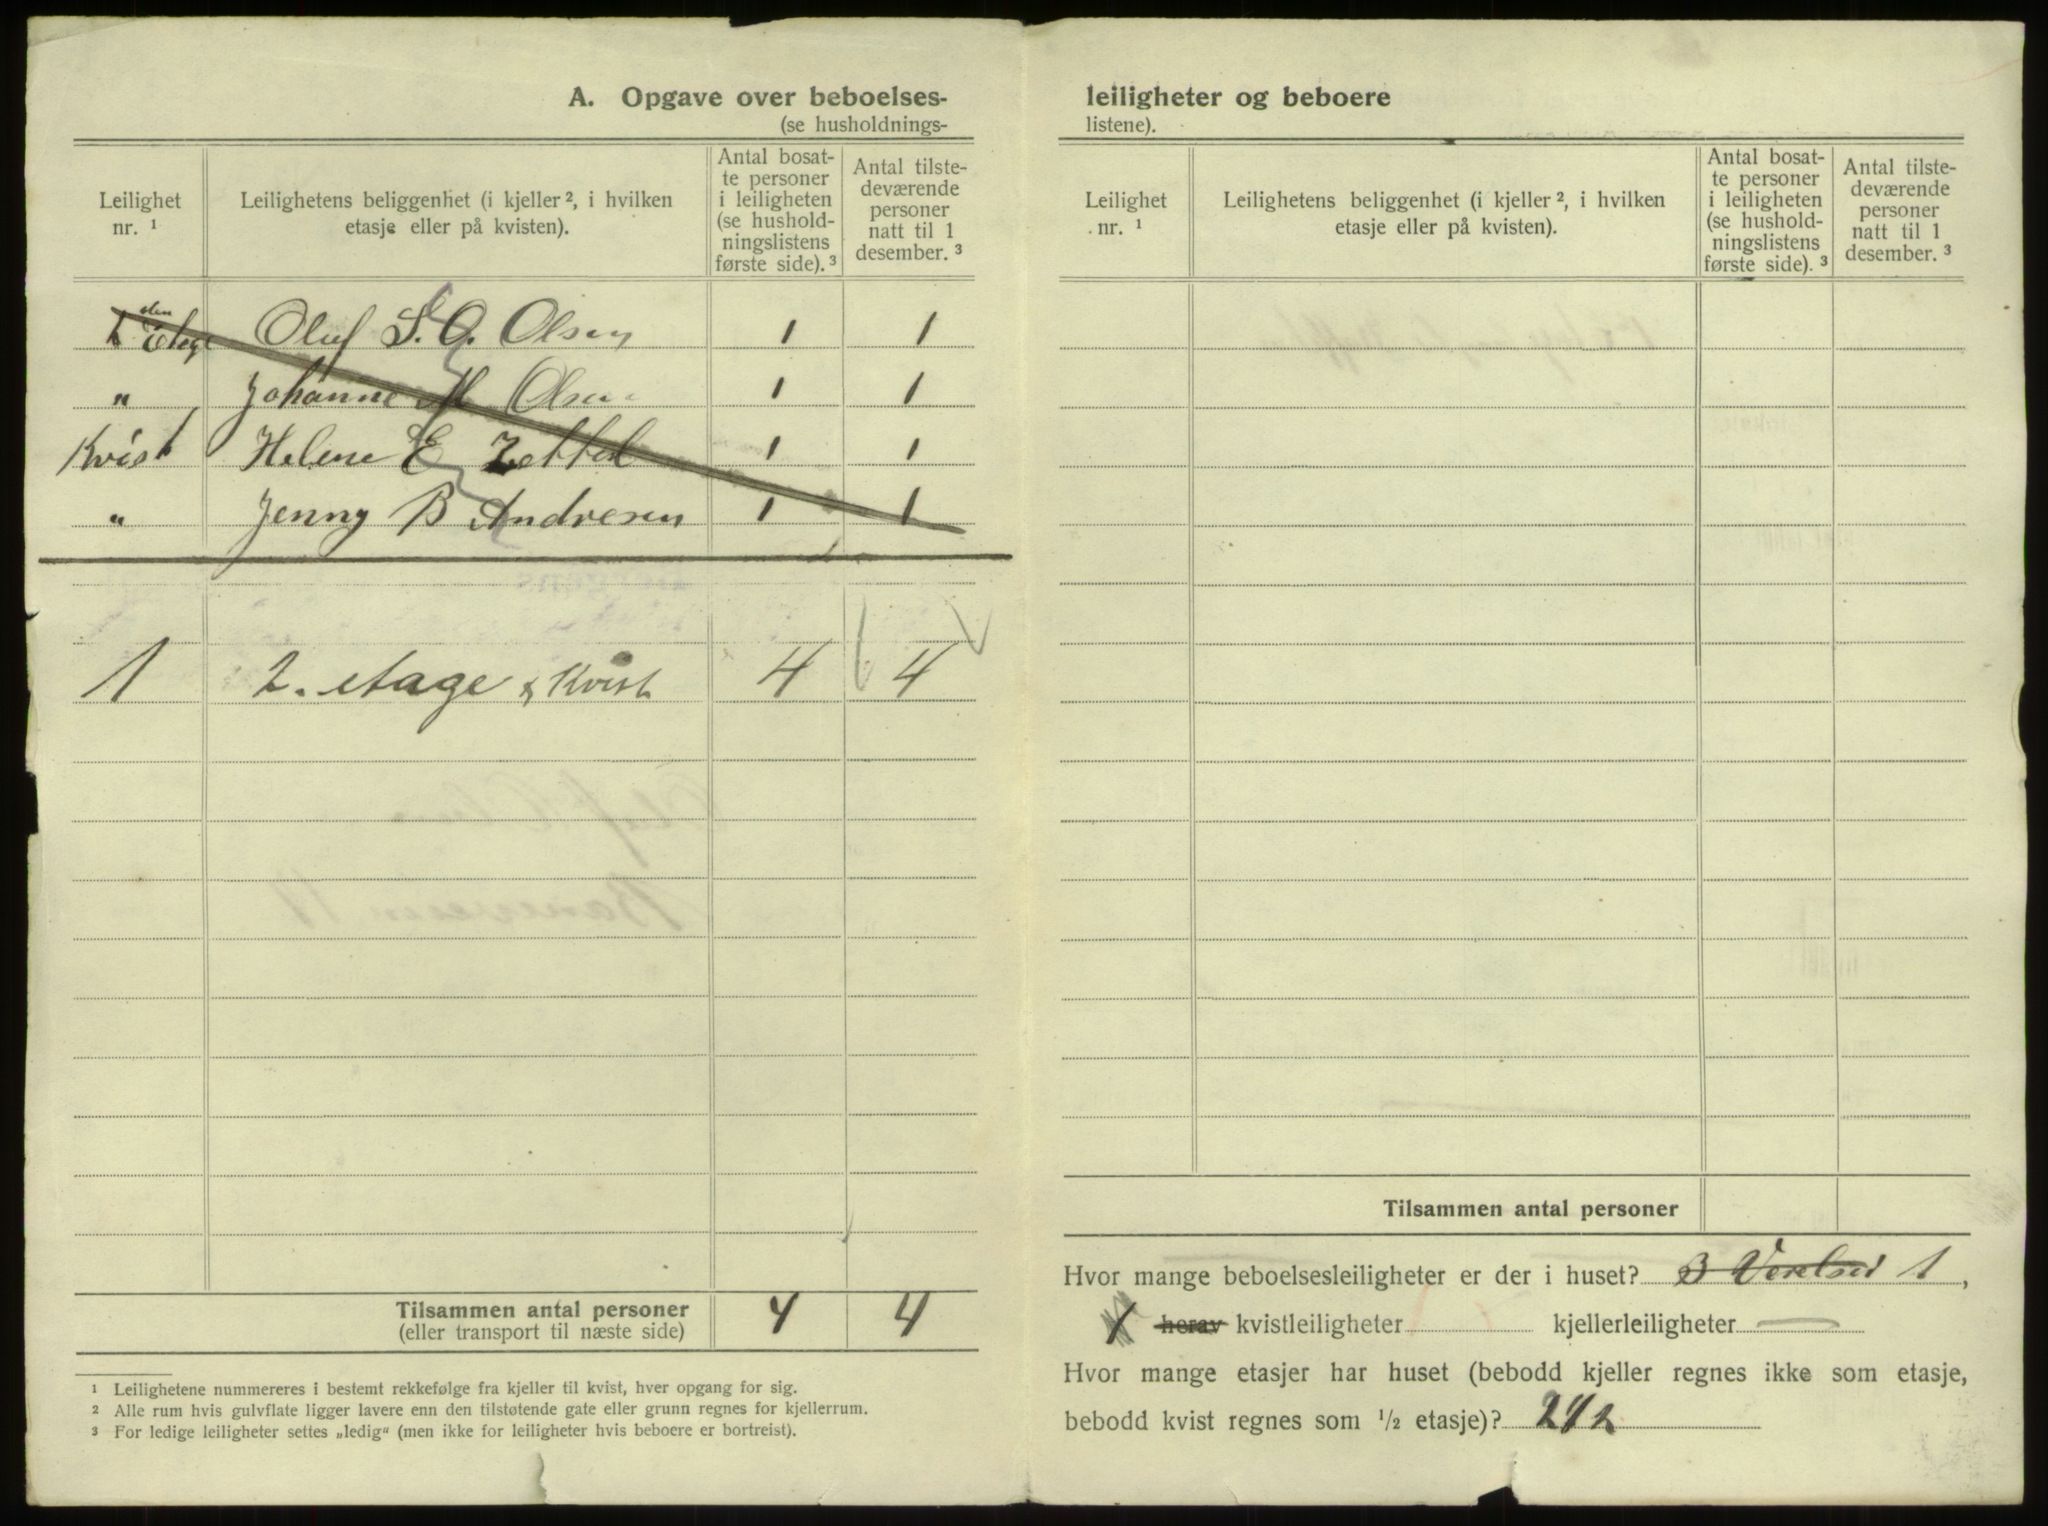 A. Opgave over beboelses-
(se husholdnings-
Leilighet nr. ¹
Leilighetens beliggenhet (i kjeller ², i hvilken etasje eller på kvisten).
Antal bosat-te personer i leiligheten (se hushold-ningslistens første side). ³
Antal tilste-deværende personer natt til 1 desember. ³
den Etage Oluf S. O. Olsen 1 1
" Johanne M Olsen 1 1
Kvist Helene E Zettel 1 1
" Jenny B Andresen 1 1
1 2. etage & Kvist 4 4
Tilsammen antal personer 4 4
(eller transport til næste side)
¹ Leilighetene nummereres i bestemt rekkefølge fra kjeller til kvist, hver opgang for sig.
² Alle rum hvis gulvflate ligger lavere enn den tilstøtende gate eller grunn regnes for kjellerrum.
³ For ledige leiligheter settes „ledig“ (men ikke for leiligheter hvis beboere er bortreist).
leiligheter og beboere
listene).
Leilighet nr. ¹
Leilighetens beliggenhet (i kjeller ², i hvilken etasje eller på kvisten).
Antal bosat-te personer i leiligheten (se hushold-ningslistens første side). ³
Antal tilste-deværende personer natt til 1 desember. ³
Tilsammen antal personer
Hvor mange beboelsesleiligheter er der i huset? 3 Værelser 1,
1 herav kvistleiligheter kjellerleiligheter —
Hvor mange etasjer har huset (bebodd kjeller regnes ikke som etasje,
bebodd kvist regnes som ½ etasje)? 2 1/2